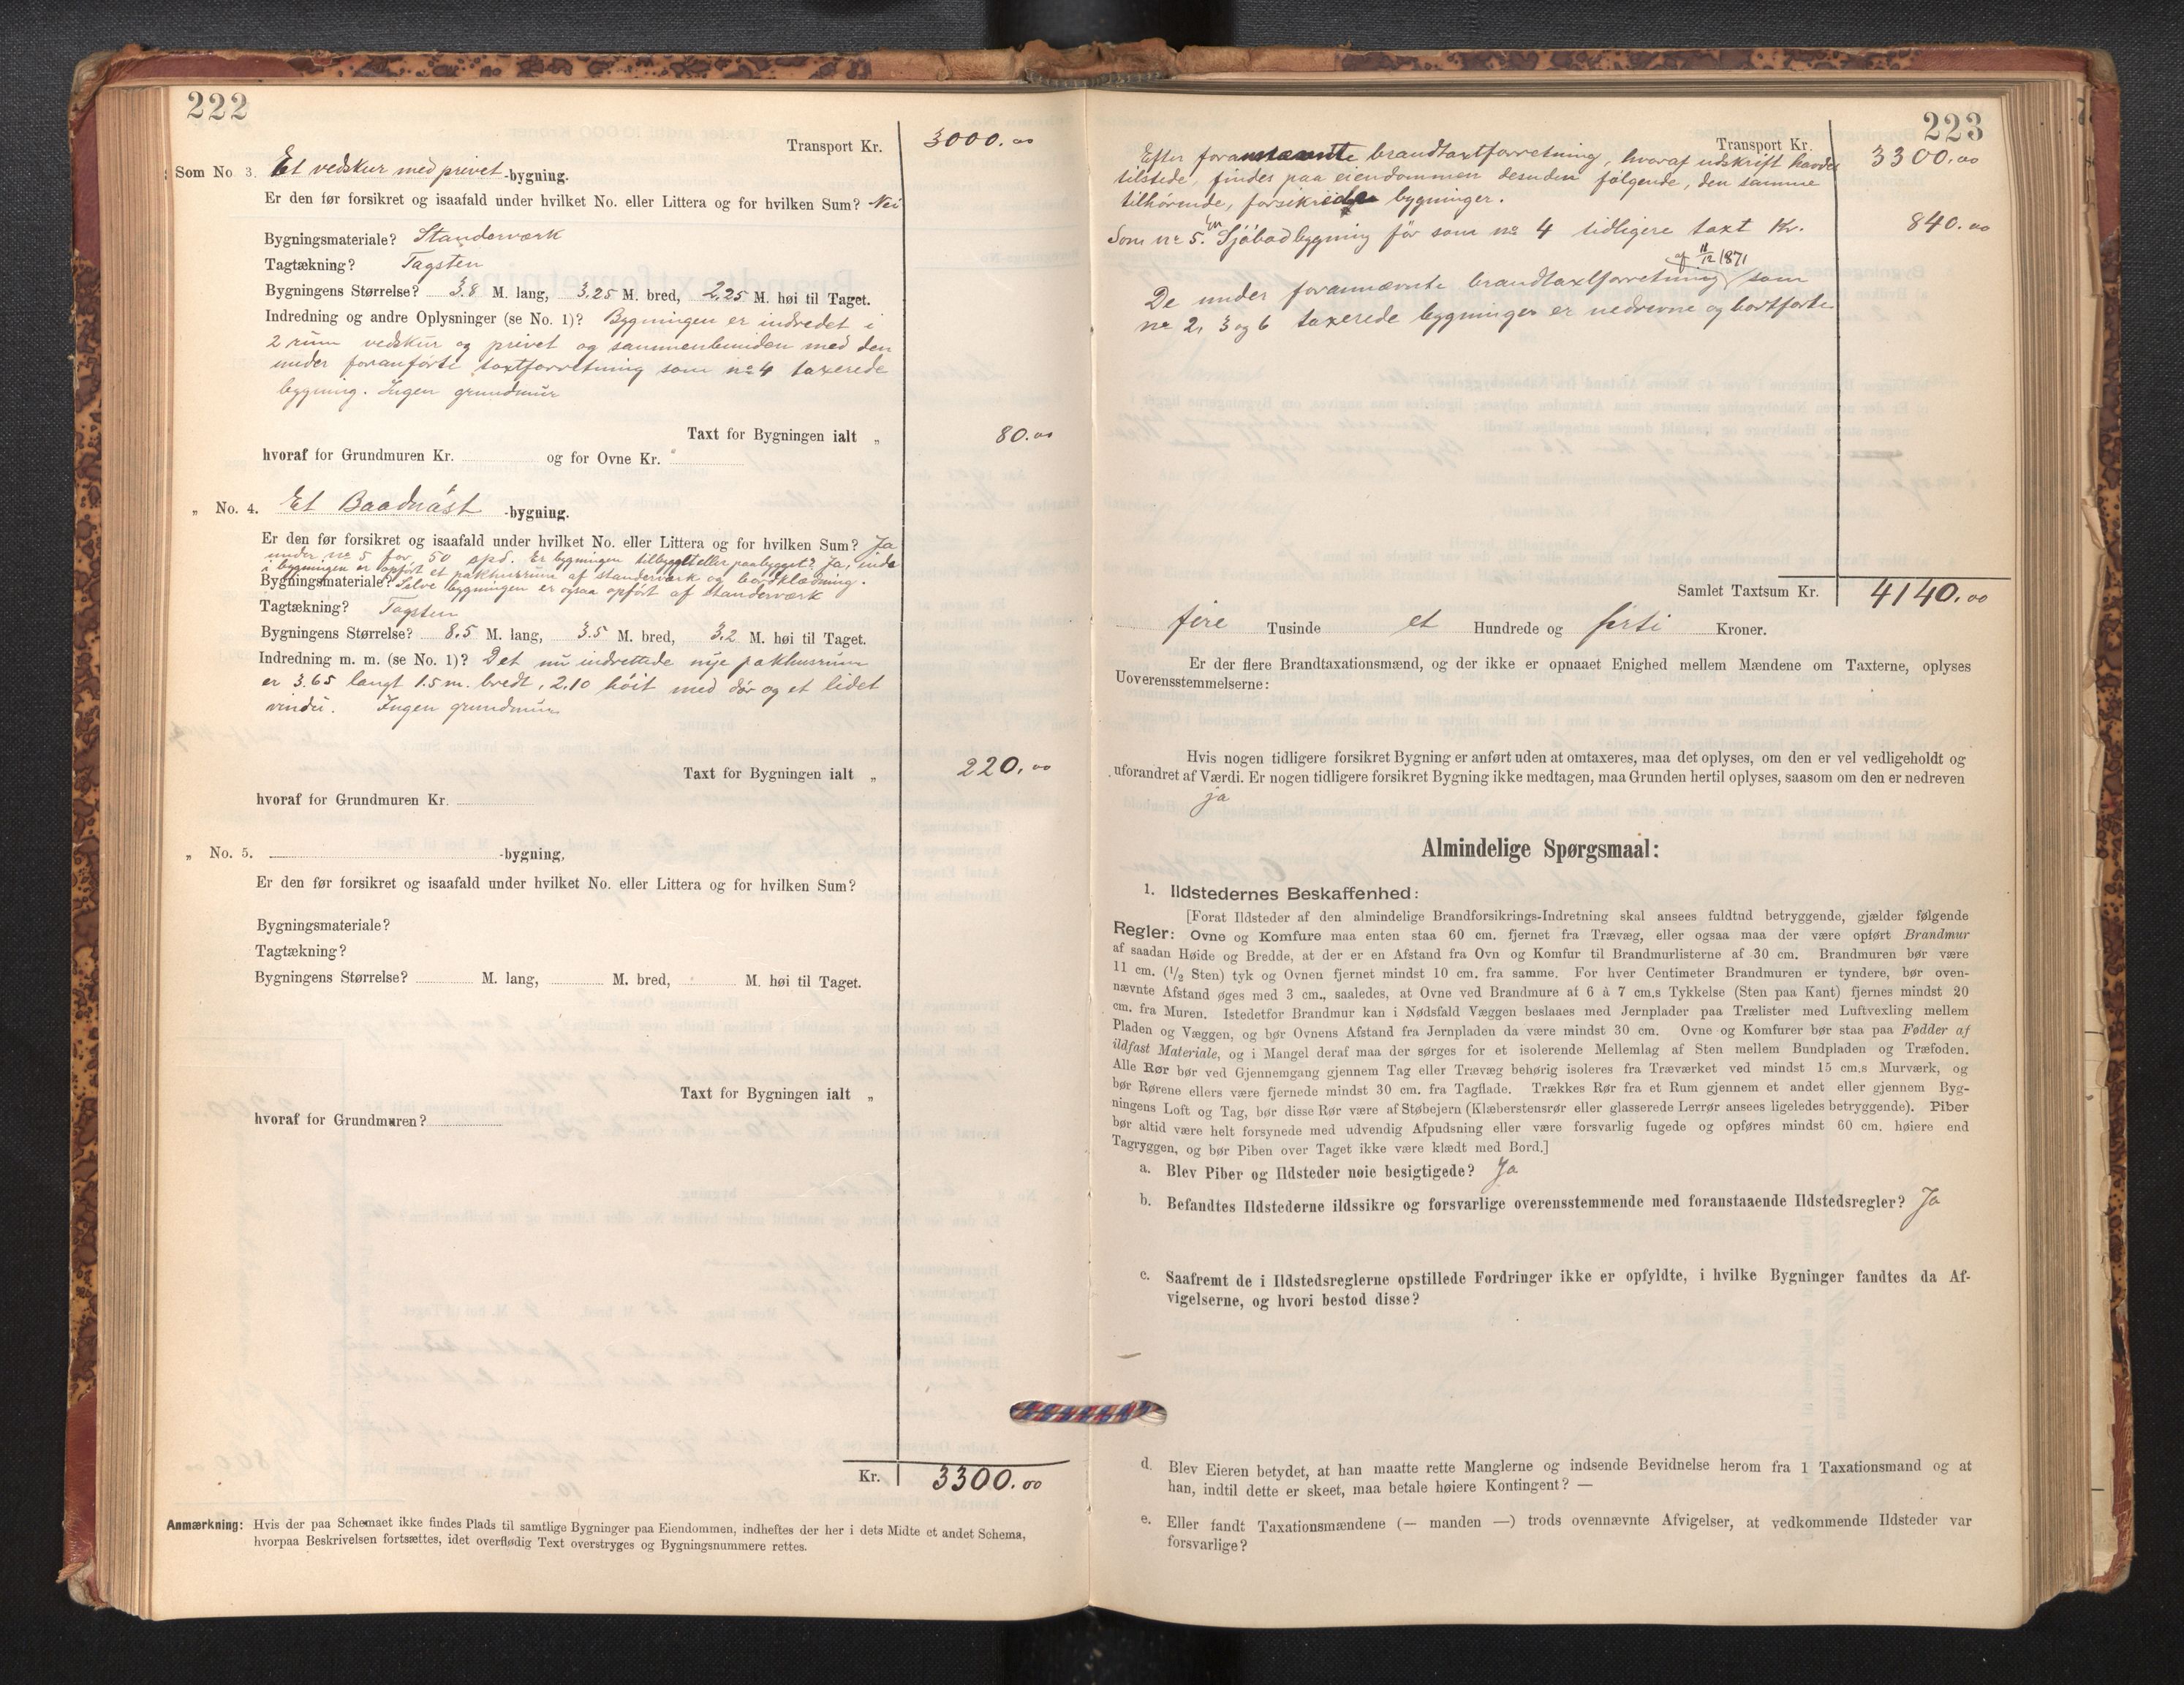 222
Transport Kr. 3000.00
Som No. 3. Et vedskur med privet -bygning.
Er den før forsikret og isaafald under hvilket No. eller Littera og for hvilken Sum? Nei
Bygningsmateriale? Standerværk
Tagtækning? Tagsten
Bygningens Størrelse? 3.8 M. lang, 3.25 M. bred, 2.25 M. høi til Taget.
Indredning og andre Oplysninger (se No. 1)? Bygningen er indredet i
2 rum vedskur og privet og sammenbunden med den
under foranførte taxtforretning som no 4 taxerede
bygning. Ingen grundmur
Taxt for Bygningen ialt „ 80.00
hvoraf for Grundmuren Kr. og for Ovne Kr.
„ No. 4. Et Baadnøst -bygning.
Er den før forsikret og isaafald under hvilket No. eller Littera og for hvilken Sum? Ja
under no 5 for 50 spd. Er bygningen tilbygget eller paabygget? Ja, inde
i bygningen er opført et pakhusrum af standerværk og bordklædning.
Bygningsmateriale? Selve bygningen er ogsaa opført af standerværk
Tagtækning? Tagsten
Bygningens Størrelse? 8.5 M. lang, 3.5 M. bred, 3.2 M. høi til Taget.
Indredning m. m. (se No. 1)? Det nu indrettede nye pakhusrum
er 3.65 langt 1.5 m. bredt, 2.10 høit med dør og et lidet
vindu. Ingen grundmur
Taxt for Bygningen ialt „ 220.00
hvoraf for Grundmuren Kr.
„ No. 5. -bygning,
Er den før forsikret og isaafald under hvilket No. eller Littera og for hvilken Sum?
Bygningsmateriale?
Tagtækning?
Bygningens Størrelse? M. lang, M. bred, M. høi til Taget.
Taxt for Bygningen ialt „
hvoraf for Grundmuren?
Kr. 3300.00
Anmærkning: Hvis der paa Schemaet ikke findes Plads til samtlige Bygninger paa Eiendommen, indheftes der her i dets Midte et andet Schema,
hvorpaa Beskrivelsen fortsættes, idet overflødig Text overstryges og Bygningsnummere rettes.
223
Transport Kr. 3300.00
Efter forannævnte brandtaxtforretning, hvoraf udskrift havdes
tilstede, findes paa eiendommen desuden følgende, den samme
tilhørende, forsikrede bygninger.
Som no 5. En Sjøbodbygning før som no 4 tidligere taxt Kr. 840.00
af 11/12 1871
De under forannævnte brandtaxtforretning som
no 2, 3 og 6 taxerede bygninger er nedrevne og bortførte
Samlet Taxtsum Kr. 4140.00
fire Tusinde et Hundrede og førti Kroner.
Er der flere Brandtaxationsmænd, og der ikke er opnaaet Enighed mellem Mændene om Taxterne, oplyses
Uoverensstemmelserne:
Hvis nogen tidligere forsikret Bygning er anført uden at omtaxeres, maa det oplyses, om den er vel vedligeholdt og
uforandret af Værdi. Er nogen tidligere forsikret Bygning ikke medtagen, maa Grunden hertil oplyses, saasom om den er nedreven
ja
Almindelige Spørgsmaal:
1. Ildstedernes Beskaffenhed:
[Forat Ildsteder af den almindelige Brandforsikrings-Indretning skal ansees fuldtud betryggende, gjælder følgende
Regler: Ovne og Komfure maa enten staa 60 cm. fjernet fra Trævæg, eller ogsaa maa der være opført Brandmur
af saadan Høide og Bredde, at der er en Afstand fra Ovn og Komfur til Brandmurlisterne af 30 cm. Brandmuren bør være
11 cm. (1/2 Sten) tyk og Ovnen fjernet mindst 10 cm. fra samme. For hver Centimeter Brandmuren er tyndere, bør oven-
nævnte Afstand øges med 3 cm., saaledes, at Ovne ved Brandmure af 6 à 7 cm.s Tykkelse (Sten paa Kant) fjernes mindst 20
cm. fra Muren. Istedetfor Brandmur kan i Nødsfald Væggen beslaaes med Jernplader paa Trælister med Luftvexling mellem
Pladen og Væggen, og bør Ovnens Afstand fra Jernpladen da være mindst 30 cm. Ovne og Komfurer bør staa paa Fødder af
ildfast Materiale, og i Mangel deraf maa der sørges for et isolerende Mellemlag af Sten mellem Bundpladen og Træfoden.
Alle Rør bør ved Gjennemgang gjennem Tag eller Trævæg behørig isoleres fra Træværket ved mindst 15 cm.s Murværk, og
bør Rørene ellers være fjernede mindst 30 cm. fra Tagflade. Trækkes Rør fra et Rum gjennem et andet eller gjennem Byg-
ningens Loft og Tag, bør disse Rør være af Støbejern (Klæberstensrør eller glasserede Lerrør ansees ligeledes betryggende). Piber
bør altid være helt forsynede med udvendig Afpudsning eller være forsvarlig fugede og opføres mindst 60 cm. høiere end
Tagryggen, og bør Piben over Taget ikke være klædt med Bord.]
a. Blev Piber og Ildsteder nøie besigtigede? Ja
b. Befandtes Ildstederne ildssikre og forsvarlige overensstemmende med foranstaaende Ildstedsregler? Ja
c. Saafremt de i Ildstedsreglerne opstillede Fordringer ikke er opfyldte, i hvilke Bygninger fandtes da Af-
vigelserne, og hvori bestod disse?
d. Blev Eieren betydet, at han maatte rette Manglerne og indsende Bevidnelse herom fra 1 Taxationsmand og at
han, indtil dette er skeet, maa betale høiere Kontingent? —
e. Eller fandt Taxationsmændene (— manden —) trods ovennævnte Afvigelser, at vedkommende Ildsteder var
forsvarlige?